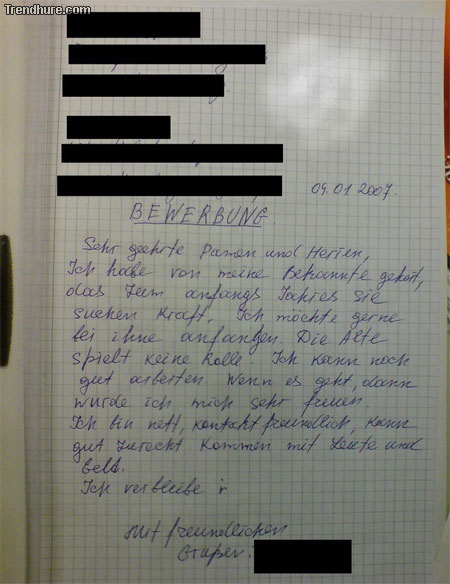 Trendhure.com
09.01.2007.
BEWERBUNG
Sehr geehrte Damen und Herren,
Ich habe von meine Bekannte gehört,
das zum anfangs Jahres sie
suchen Kraft. Ich möchte gerne
bei ihne anfangen. Die Alte
spielt keine Rolle. Ich kann noch
gut arbeiten. Wenn es geht, dann
wurde ich mich sehr freuen
Ich bin nett, kontaktfreundlich, kann
gut zurecht kommen mit Leute und
Geld.
Ich verbleibe
Mit freundlichen
Grüßen: